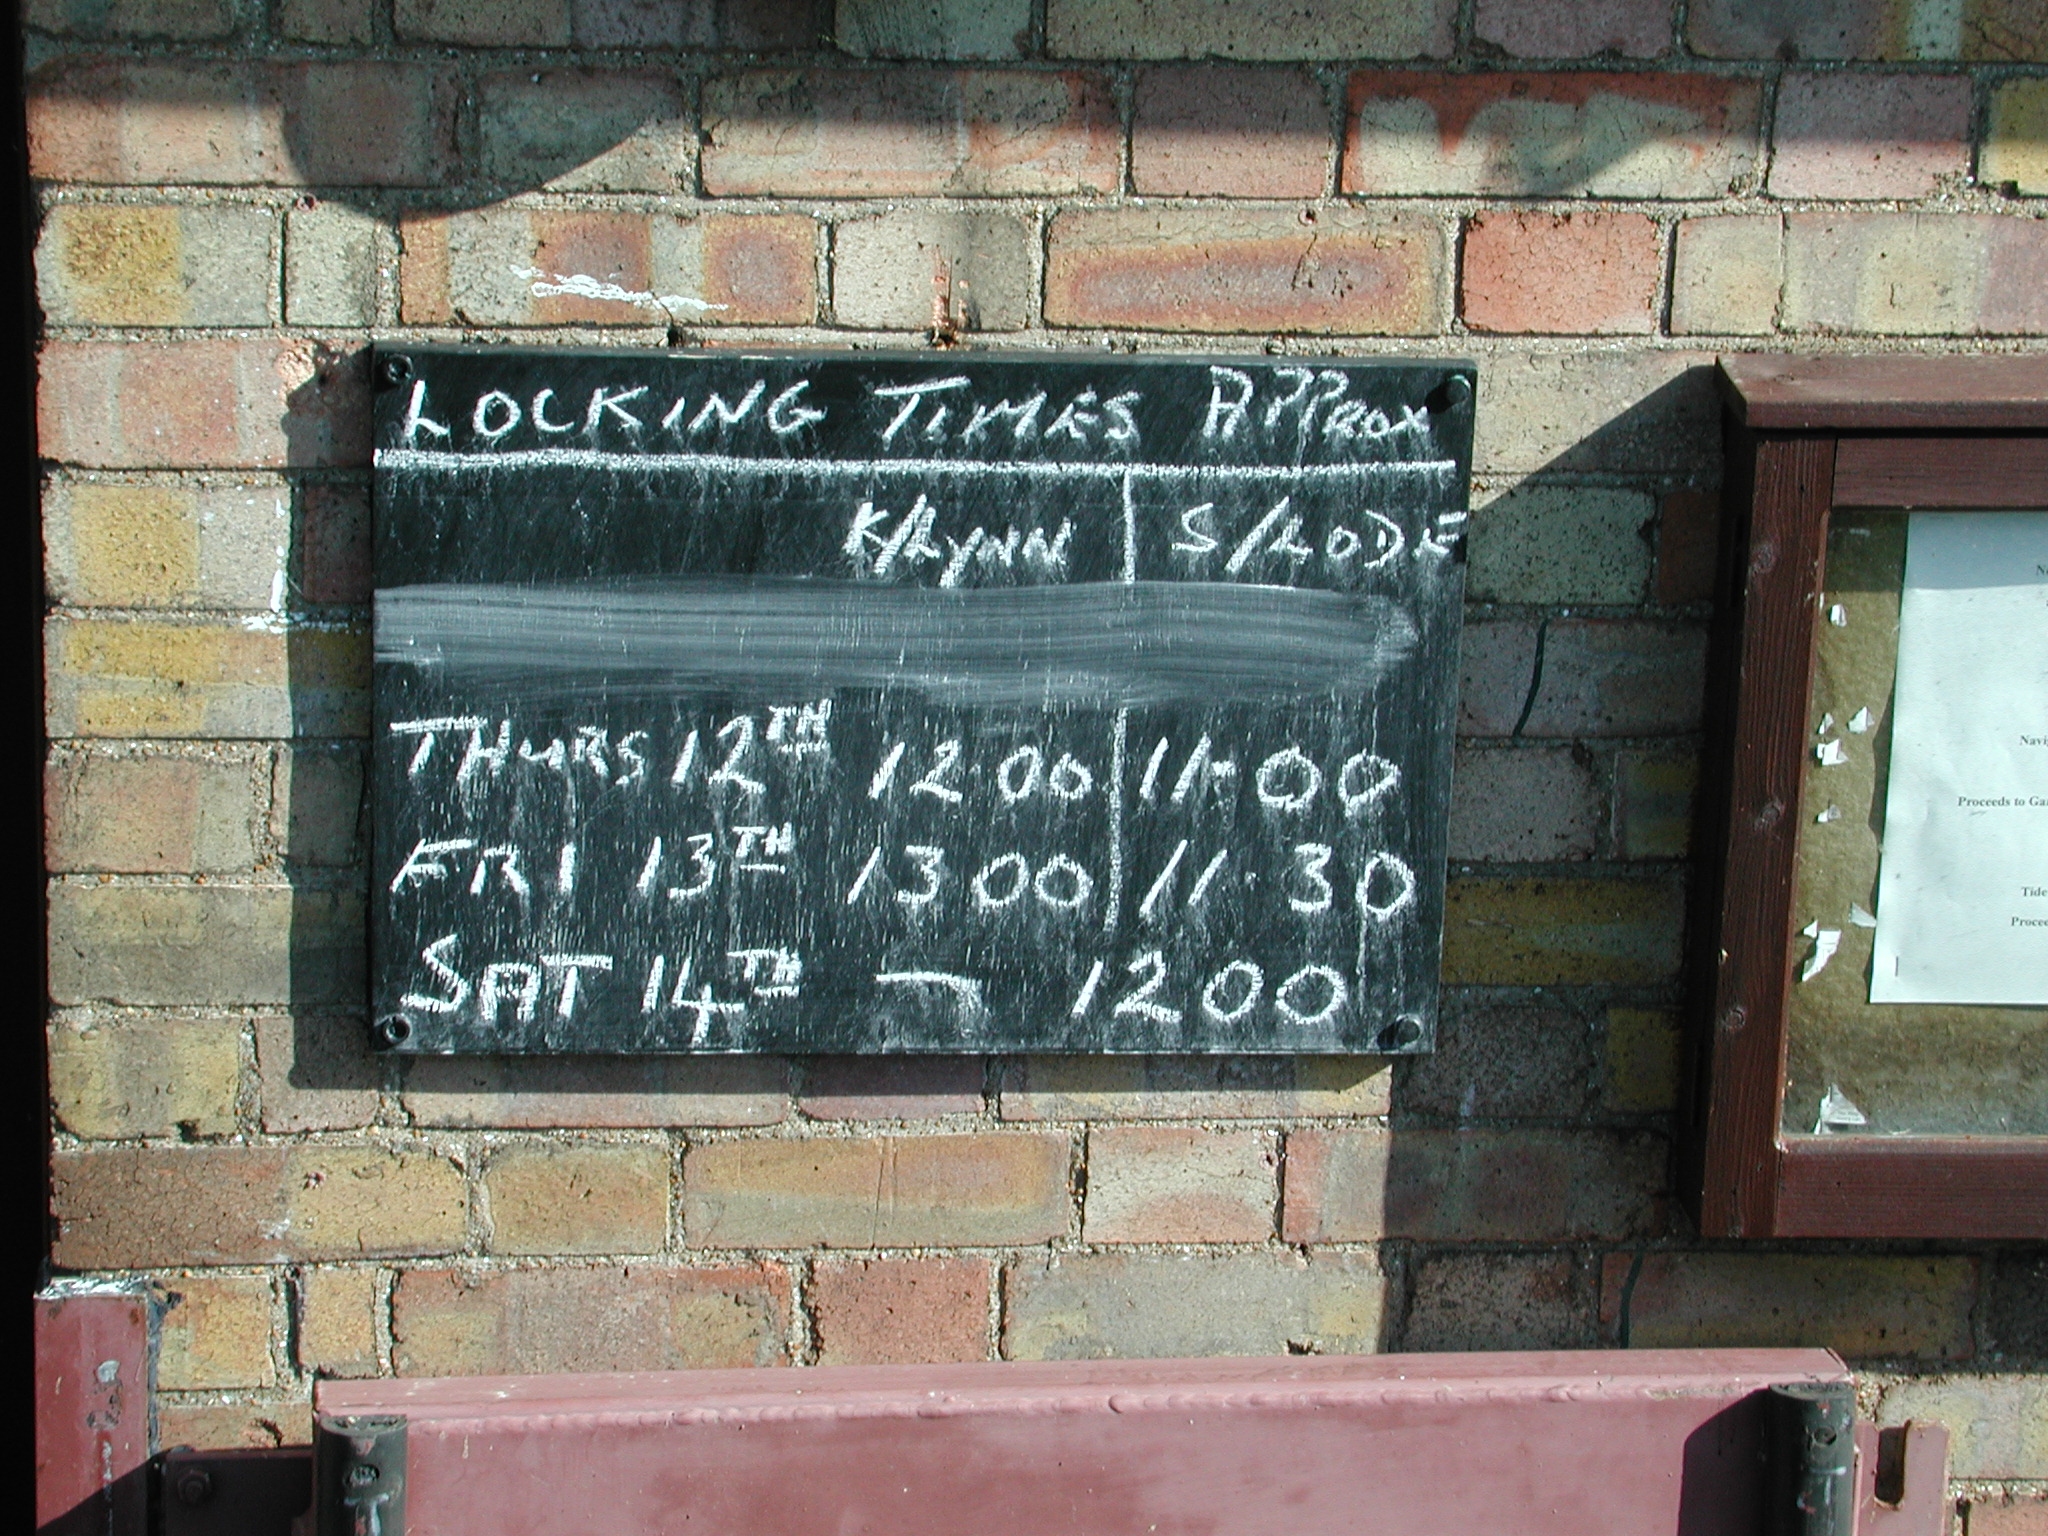 LOCKING TIMES APPROX
K/LYNN S/LODE
THURS 12TH 1200 11.00
FRI 13TH 1300 11.30
SAT 14TH – 1200
Proceeds to